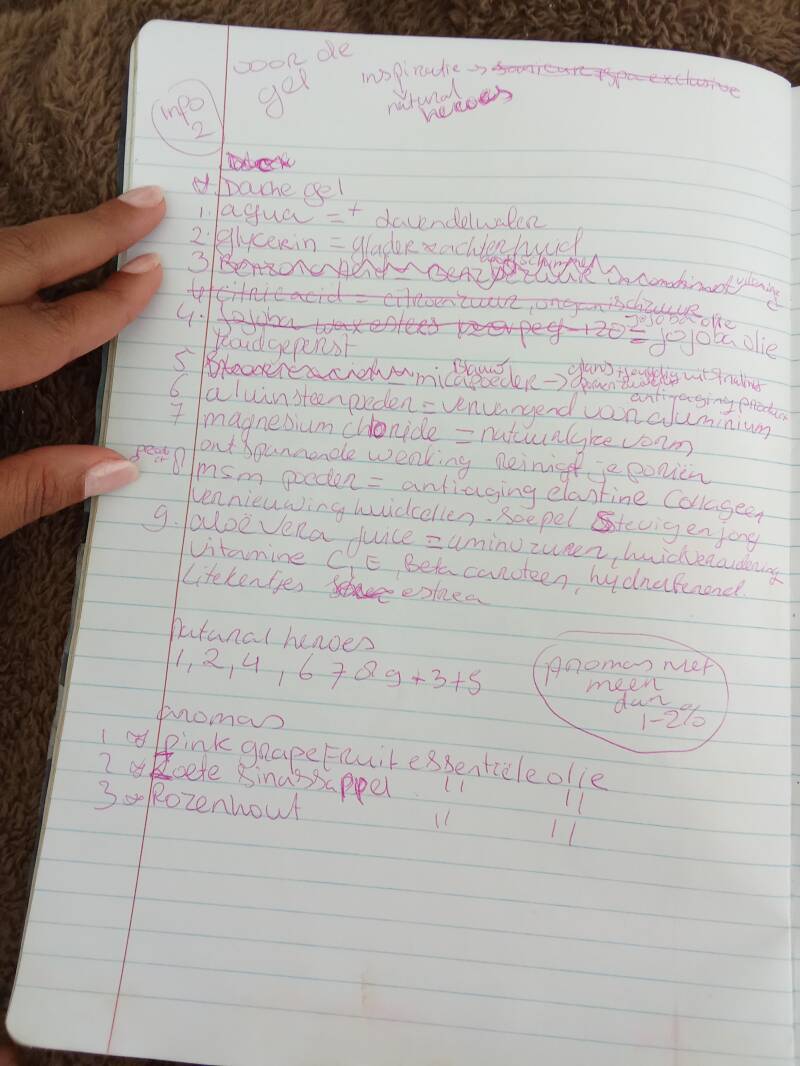 voor de
gel
inspiratie → exclusive
natural
heroes
info
2
Dache gel
1. aqua = + lavendelwater
2. glycerin = gladere zachter huid
3
4 citric acid = citroenzuur, organischzuur
4. Jojoba wax esters peg-120 = jojoba olie jojoba olie
koudgeperst
5 micapoeder →
antiaging product
6 aluinsteenpoeder = vervangend voor aluminium
7 magnesium chloride = natuurlijke vorm
ontspannende werking Reinigt je poriën
8 msm poeder = antiaging elastine Collageen
vernieuwing huidcellen. Soepel Stevig en jong
9. aloë vera juice = aminozuren, huidveroudering
vitamine C, E, Beta caroteen, hydraterend
Litekentjes estrea
Natural heroes
1, 2, 4, 6 7 8 9 + 3 + 5
Aromas niet
meer
dan
1-2%
aromas
1 pink grapefruit essentiële olie
2 Zoete Sinassappel " "
3 Rozenhout " "